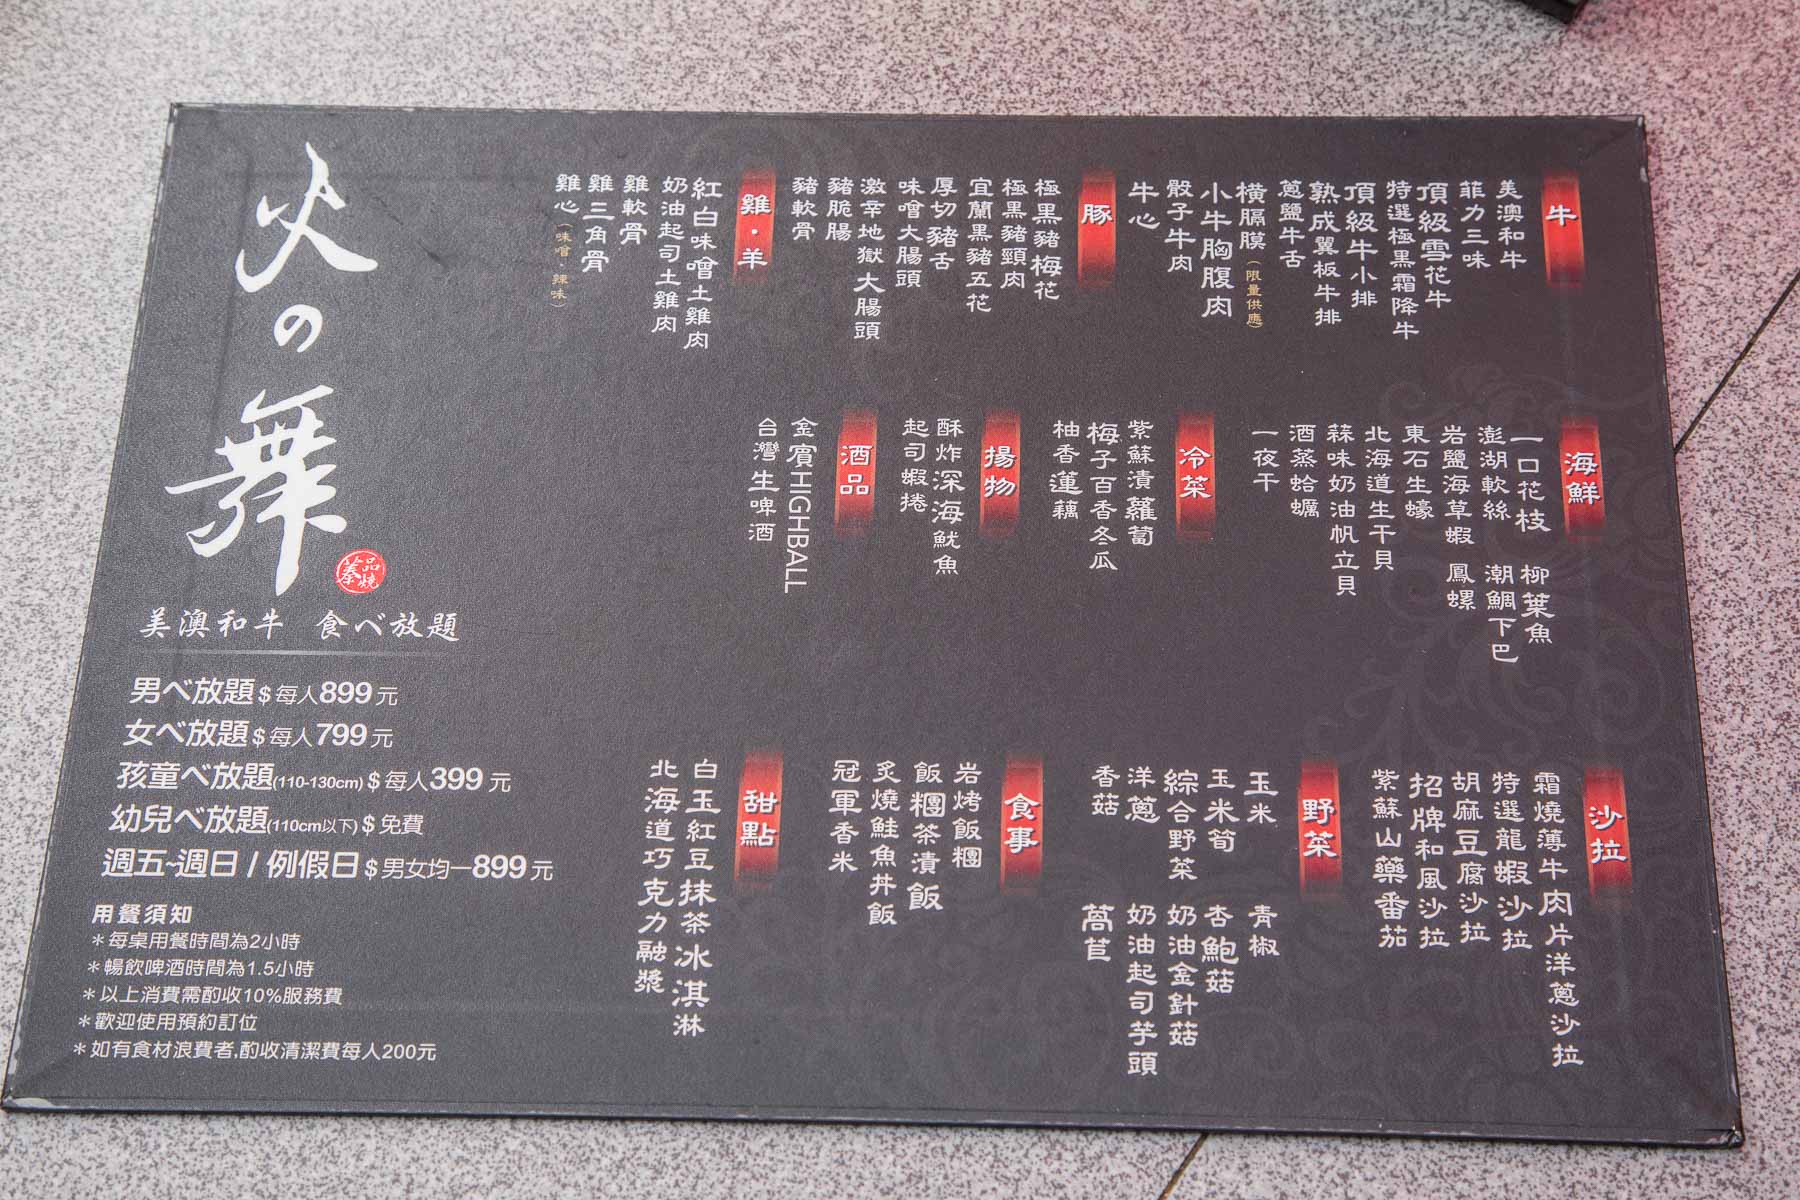 火の舞
蓁品燒
美澳和牛 食べ放題
男べ放題 $ 每人899 元
女べ放題 $ 每人799 元
孩童べ放題(110-130cm) $ 每人399 元
幼兒べ放題(110cm以下) $ 免費
週五~週日 / 例假日 $ 男女均一899 元
用餐須知
＊每桌用餐時間為2小時
＊暢飲啤酒時間為1.5小時
＊以上消費需酌收10%服務費
＊歡迎使用預約訂位
＊如有食材浪費者,酌收清潔費每人200元
牛
美澳和牛
菲力三味
頂級雪花牛
特選極黑霜降牛
頂級牛小排
熟成翼板牛排
蔥鹽牛舌
橫膈膜(限量供應)
小牛胸腹肉
骰子牛肉
牛心
豚
極黑豬梅花
極黑豬頸肉
宜蘭黑豬五花
厚切豬舌
味噌大腸頭
激辛地獄大腸頭
豬脆腸
豬軟骨
雞・羊
紅白味噌土雞肉
奶油起司土雞肉
雞軟骨
雞三角骨
雞心(味噌・辣味)
海鮮
一口花枝 柳葉魚
澎湖軟絲 潮鯛下巴
岩鹽海草蝦 鳳螺
東石生蠔
北海道生干貝
蒜味奶油帆立貝
酒蒸蛤蠣
一夜干
冷菜
紫蘇漬蘿蔔
梅子百香冬瓜
柚香蓮藕
揚物
酥炸深海魷魚
起司蝦捲
酒品
金賓HIGHBALL
台灣生啤酒
沙拉
霜燒薄牛肉片洋蔥沙拉
特選龍蝦沙拉
胡麻豆腐沙拉
招牌和風沙拉
紫蘇山藥番茄
野菜
玉米 青椒
玉米筍 杏鮑菇
綜合野菜 奶油金針菇
洋蔥 奶油起司芋頭
香菇 萵苣
食事
岩烤飯糰
飯糰茶漬飯
炙燒鮭魚丼飯
冠軍香米
甜點
白玉紅豆抹茶冰淇淋
北海道巧克力融漿